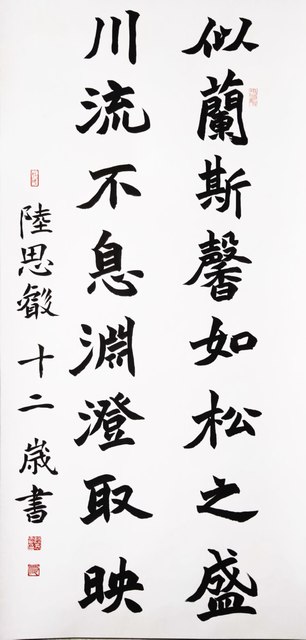 似蘭斯馨如松之盛
川流不息淵澄取映
陸思叡十二歲書